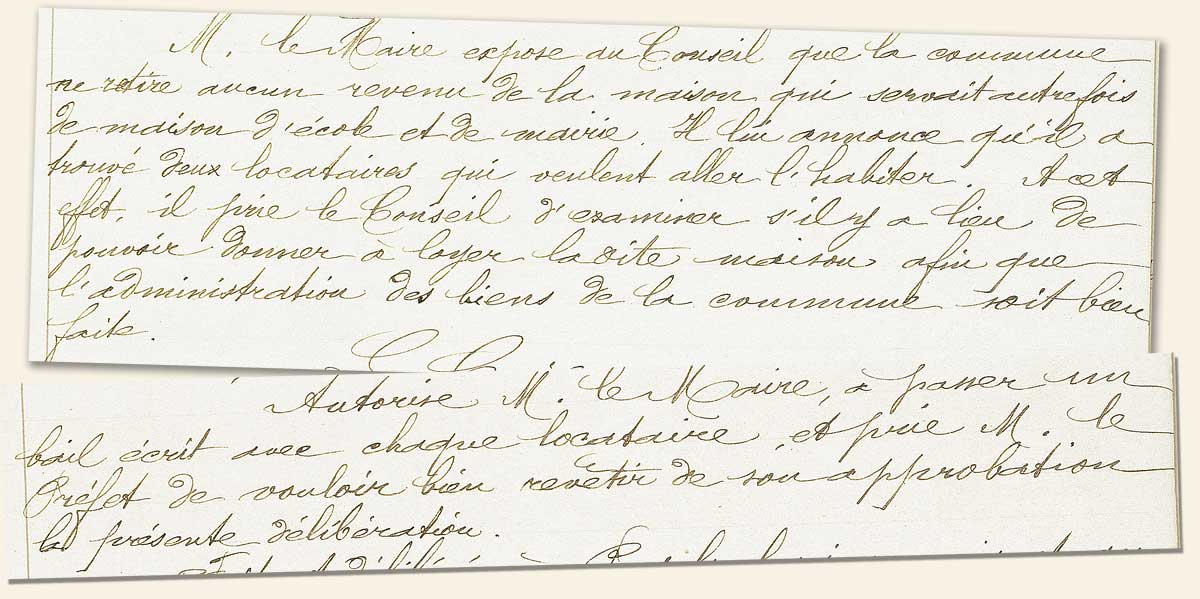 M. le Maire expose au Conseil que la commune
ne retire aucun revenu de la maison qui servait autrefois
de maison d'école et de mairie. Il lui annonce qu'il a
trouvé deux locataires qui veulent aller l'habiter. A cet
effet, il prie le Conseil d'examiner s'il y a lieu de
pouvoir donner à loyer la dite maison afin que
l'administration des biens de la commune soit bien
faite.
Autorise M. le Maire, à passer un
bail écrit avec chaque locataire, et prie M. le
Préfet de vouloir bien revêtir de son approbation
la présente délibération.